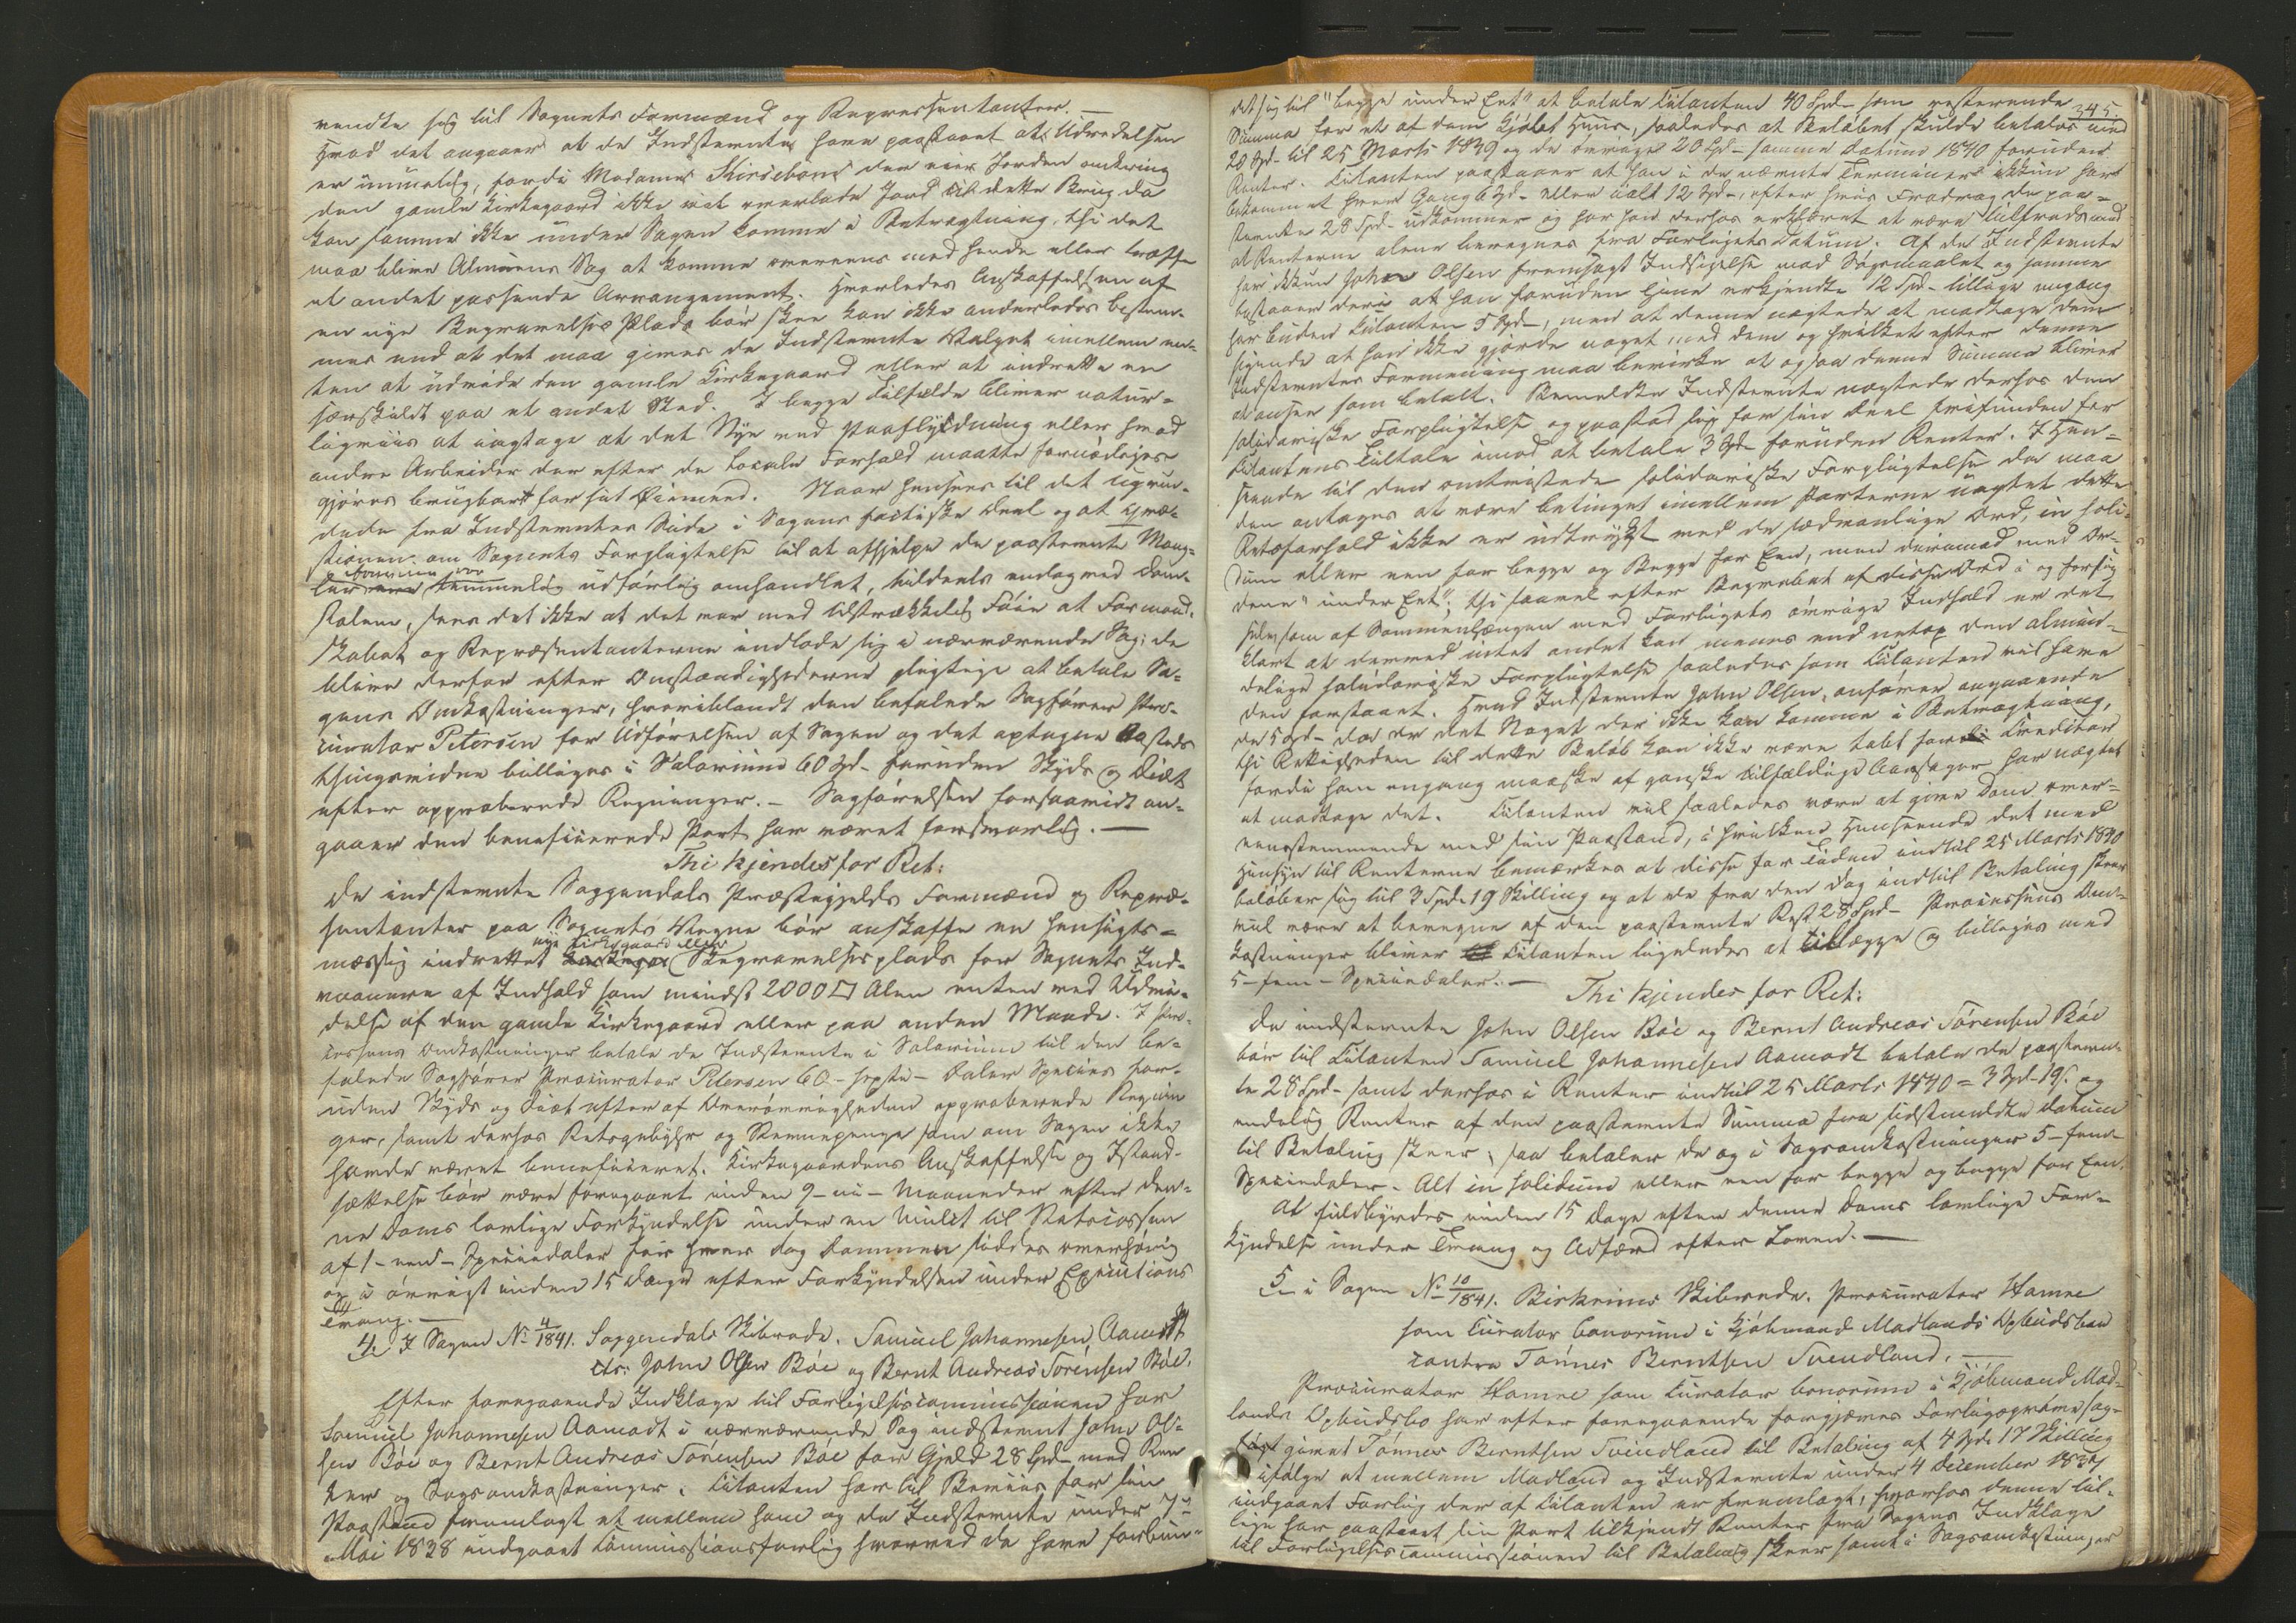 vendte sig til Sognets Formænd og Repræsentanter. —
Hvad det angaaer at de Indstevnte have paastaaet at Udvidelsen
er umuelig, fordi Madame Kirsebom der eier Jorden omkring
den gamle Kirkegaard ikke vil overlade Jord til dette Brug da
kan saamme ikke under Sagen komme i Betragtning, thi det
maa blive Almuens Sag at komme overeens med hende eller træffe
et andet passende Arrangement. Hvorledes Anskaffelsen af
en nye Begravelses Plads bør skee kan ikke anderledes bestem-
mes end at det maa gives de Indstevnte Valget imellem en-
ten at udvide den gamle Kirkegaard eller at indrette en
særskildt paa et andet Sted. I begge Tilfælde bliver natur-
ligviis at iagttage at det Nye ved Paafyldning eller hvad
andre Arbeider der efter de locale Forhold maatte fornødiges
gjøres brugbart for sit Øiemeed. Naar hensees til det ugrun-
dede fra Indstevntes Side i Sagens factiske Deel og at qvæ-
stionen om Sognets Forpligtelse til at afhjelpe de paastevnte Mang-
ler temmelig udførlig omhandlet, tildeels endog ved Dom-
stolene, sees det ikke at det var med tilstrækkelig Føie at Formand-
skabet og Repræsentanterne indlode sig i nærværende Sag; de
blive derfor efter Omstændighederne pligtige at betale Sa-
gens Omkostninger, hvoriblandt den befalede Sagfører Pro-
curator Petersen for Udførelsen af Sagen og det optagne Aasteds
thingsvidne billiges i Salarium 60 Spd. foruden Skyds og Diæt
efter approberede Regninger. — Sagførelsen forsaavidt an-
gaaer den beneficerede Part har været forsvarlig. —
Thi kjendes for Ret:
De indstevnte Soggendals Præstegjelds Formænd og Repræ-
sentanter paa Sognets Vegne bør anskaffe en hensigts-
mæssig indrettet nye Kirkegaard eller Begravelsesplads for Sognets Ind-
vaanere af Indhold som mindst 2000 □ Alen enten ved Udvi-
delse af den gamle Kirkegaard eller paa anden Maade. I Pro-
cessens Omkostninger betale de Indstevnte i Salarium til den be-
falede Sagfører Procurator Petersen 60 – sexti – Daler Species for-
uden Skyds og Diæt efter af Øverøvrigheden approberede Regnin
ger, samt derhos Retsgebyhr og Stevnepenge som om Sagen ikke
havde været beneficeret. Kirkegaardens Anskaffelse og Istand-
sættelse bør være foregaaet inden 9 – ni – Maaneder efter den-
ne Doms lovlige Forkyndelse under en Mulct til Statscassen
af 1 – een – Speciedaler for hver Dag Dommen siddes overhørig
og i øvrigt inden 15 Dage efter Forkyndelsen under Executions
Tvang. —
4. I Sagen No 4/1841. Soggendals Skibrede. Samuel Johannesen Aamodt
ctr: John Olsen Bøe og Bernt Andreas Sørensen Bøe.
Efter foregaaende Indklage til Forligelsescommissionen har
Samuel Johannesen Aamodt i nærværende Sag indstevnt John Ol-
sen Bøe og Bernt Andreas Sørensen Bøe for Gjeld 28 Spd. med Ren
ter og Sagsomkostninger. Citanten har til Beviis for sin
Paastand fremlagt et mellem ham og de Indstevnte under
Mai 1838 indgaaet Commissionsforlig hvorved de have forbun-
345.
det sig til "begge under Eet" at betale Citanten 40 Spd. som resterende
Summa for et af dem kjøbt Huus, saaledes at Beløbet skulde betales med
20 Spd. til 25 Marts 1839 og de øvrige 20 Spd. samme Datum 1840 foruden
Renter. Citanten paastaaer at han i de nævnte Terminer ikkun har
bekommet hver Gang 6 Spd. eller ialt 12 Spd., efter hvis Fradrag de paa-
stevnte 28 Spd. udkommer og har han derhos erklæret at være tilfreds med
at Renterne alene beregnes fra Forligets Datum. Af de Indstevnte
har ikkun John Olsen fremsagt Indsigelse mod Søgsmaalet og samme
bestaaer deri at han foruden hine erkjendte 12 Spd. tillige engang
har buden Citanten 5 Spd., men at denne nægtede at modtage dem
sigende at han ikke gjorde noget med dem og hvilket efter denne
Indstevntes Formening maa bevirke at ogsaa denne Summa bliver
at ansee som betalt. Bemeldte Indstevnte nægtede derhos den
solidariske Forpligtelse og paastod sig for sin Deel frifunden for
Citantens Tiltale imod at betale 3 Spd. foruden Renter. I Hen-
seende til den omtvistede solidariske Forpligtelse da maa
den antages at være betinget imellem Parterne uagtet dette
Retsforhold ikke er udtrykt med de sædvanlige Ord, in soli-
dum eller een for begge og Begge for Een, men derimod med Or-
dene "under Eet"; thi saavel efter Begrebet af disse Ord i og forsig
selv, som af Sammenhængen med Forligets øvrige Indhold er det
klart at dermed intet andet kan menes end netop den almin-
delige solidariske Forpligtelse saaledes som Citanten vil have
den forstaaet. Hvad Indstevnte John Olsen, anfører angaaende
de 5 Spd. da er det Noget der ikke kan komme i Betragtning,
thi Rettigheden til dette Beløb kan ikke være tabt for Creditor
fordi han engang maaske af ganske tilfældige Aarsager har nægtet
at modtage det. Citanten vil saaledes være at give Dom over-
eensstemmende med sin Paastand, i hvilken Henseende det med
Hensyn til Renterne bemærkes at disse for Tiden indtil 25 Marts 1840
beløber sig til 3 Spd. 19 Skilling og at de fra den Dag indtil Betaling skeer
vil være at beregne af den paastevnte Rest 28 Spd. Processens Om-
kostninger bliver Citanten ligeledes at tillægge og billiges med
5 – fem – Speciedaler. —
Thi kjendes for Ret:
De indstevnte John Olsen Bøe og Bernt Andreas Sørensen Bøe
bør til Citanten Samuel Johannesen Aamodt betale de paastevn-
te 28 Spd. samt derhos i Renter indtil 25 Marts 1840 = 3 Spd. 19 s. og
endelig Renter af den paastevnte Summa fra sidstmeldte Datum
til Betaling skeer, saa betaler de og i Sagsomkostninger 5 – fem
Speciedaler. Alt in solidum eller een for begge og begge for Een.
At fuldbyrdes inden 15 Dage efter denne Doms lovlige For-
kyndelse under Tvang og Adfærd efter Loven. —
5. i Sagen No 10/1841. Birkrims Skibrede. Procurator Hamre
som Curator bonorum i Kjøbmand Madlands Opbudsboe
contra Tønnes Berntsen Svendland. —
Procurator Hamre som Curator bonorum i Kjøbmand Mad-
lands Opbudsbo har efter foregaaende forgjæves Forligsprøve sag-
søgt Tønnes Berntsen Svindland til Betaling af 4 Spd. 17 Skilling
ifølge et mellem Madland og Indstevnte under 4 December
indgaaet Forlig der af Citanten er fremlagt, hvorhos denne til-
lige har paastaaet sin Part tilkjendt Renter fra Sagens Indklage
til Forligelsescommissionen til Betaling skeer samt i Sagsomkostninger